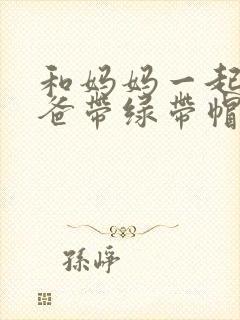 和妈妈一起
爸带绿带帽
孫崢